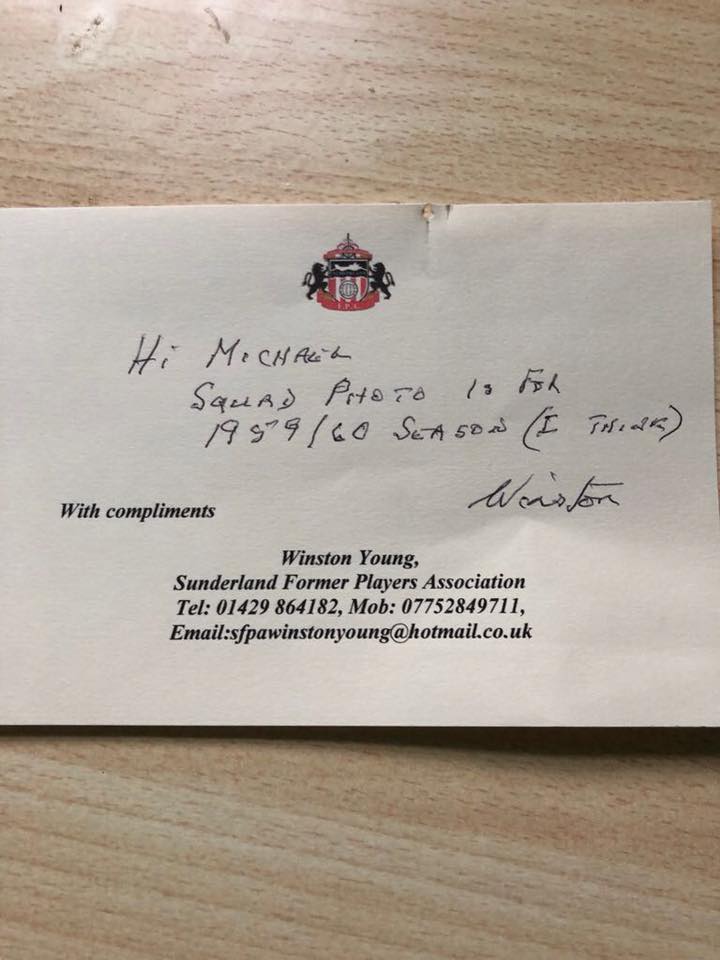 Hi MICHAEL
SQUAD PHOTO IS FOR
1959/60 SEASON (I THINK)
Winston
With compliments
Winston Young,
Sunderland Former Players Association
Tel: 01429 864182, Mob: 07752849711,
Email:sfpawinstonyoung@hotmail.co.uk